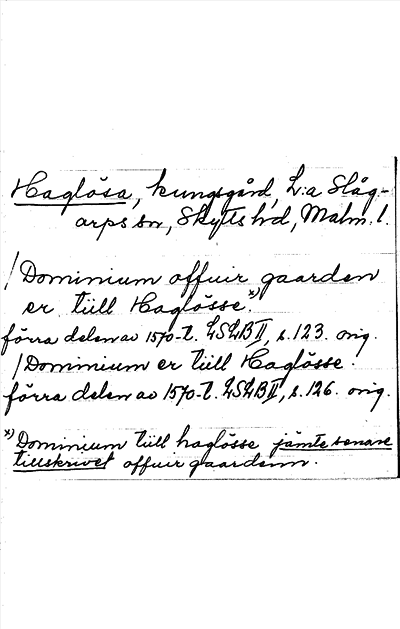 Haglösa, kungsgård, L:a Slåg-
arps sn, Skytts hd, Malm. l.
/ Dominium offuir gaarden
er tiill Haglösse. x)
förra delen av 1570-t. LSLB II, s. 123. orig.
/ Dominium er tiill Haglösse.
förra delen av 1570-t. LSLB II, s. 126. orig.
x) Dominium tiill haglösse jämte senare
tillskrivet offuir gaardenn.